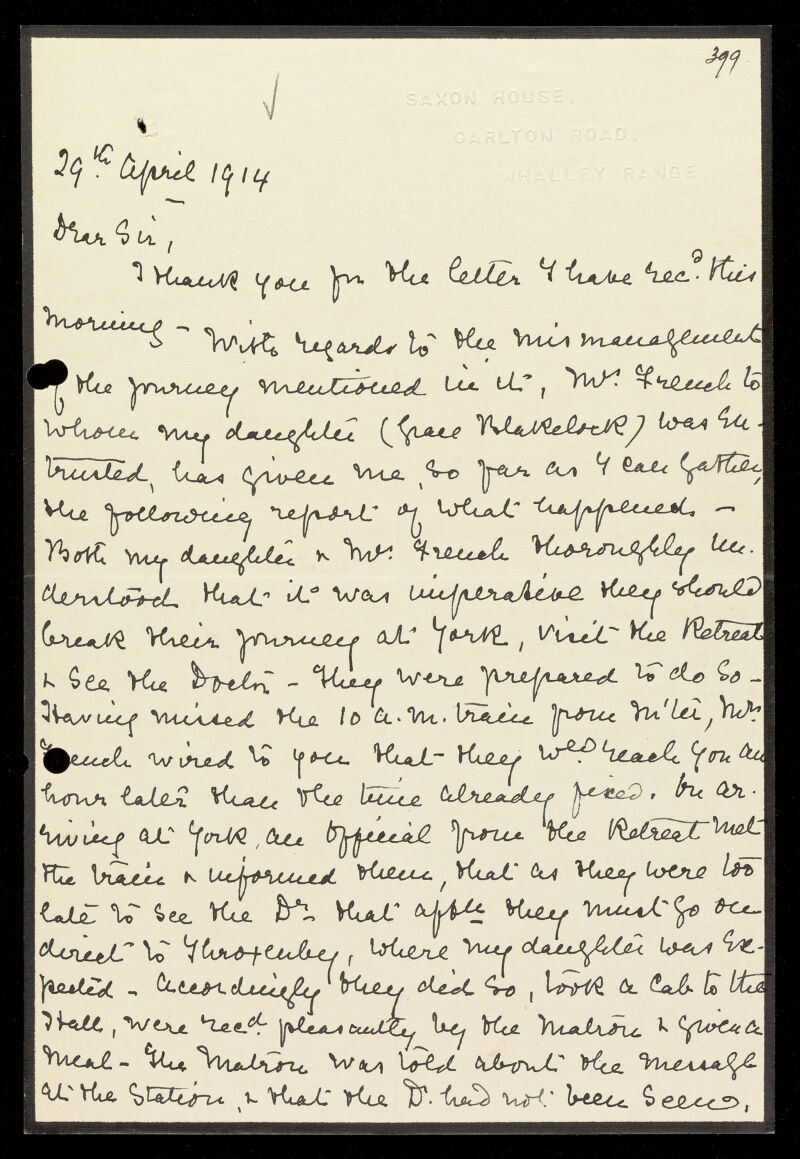 399
SAXON HOUSE.
CARLTON ROAD.
WHALLEY RANGE.
29th. April 1914
Dear Sir,
I thank you for the letter I have recd. this
morning - With regards to the mismanagement
of the journey mentioned in it, Mrs. French to
whom my daughter (Grace Blakelock) was en-
trusted, has given me, so far as I can gather,
the following report of what happened. -
Both my daughter & Mrs. French thoroughly un-
derstood that it was imperative they should
break their journey at York, visit the Retreat
& see the Doctor - They were prepared to do so -
Having missed the 10 a.m. train from M'ter, Mrs.
French wired to you that they wld. reach you an
hour later than the time already fixed. On ar-
riving at York, an official from the Retreat met
the train & informed them, that as they were too
late to see the Dr. that aftn they must go on
direct to Throxenby, where my daughter was ex-
pected - Accordingly they did so, took a cab to the
Hall, were recd. pleasantly by the Matron & given a
meal - The Matron was told about the message
at the Station, & that the Dr. had not been seen.